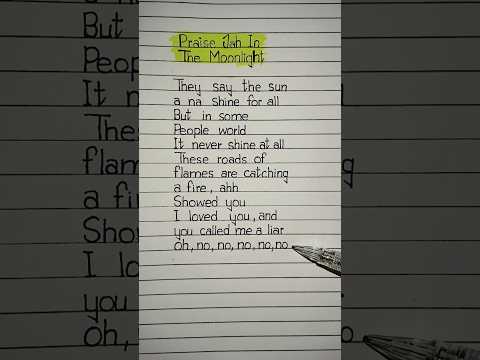 Praise Jah In
The Moonlight
They say the sun
a na shine for all
But in some
People world
It never shine at all
These roads of
flames are catching
a fire, ahh
Showed you
I loved you, and
you called me a liar
oh, no, no, no, no, no